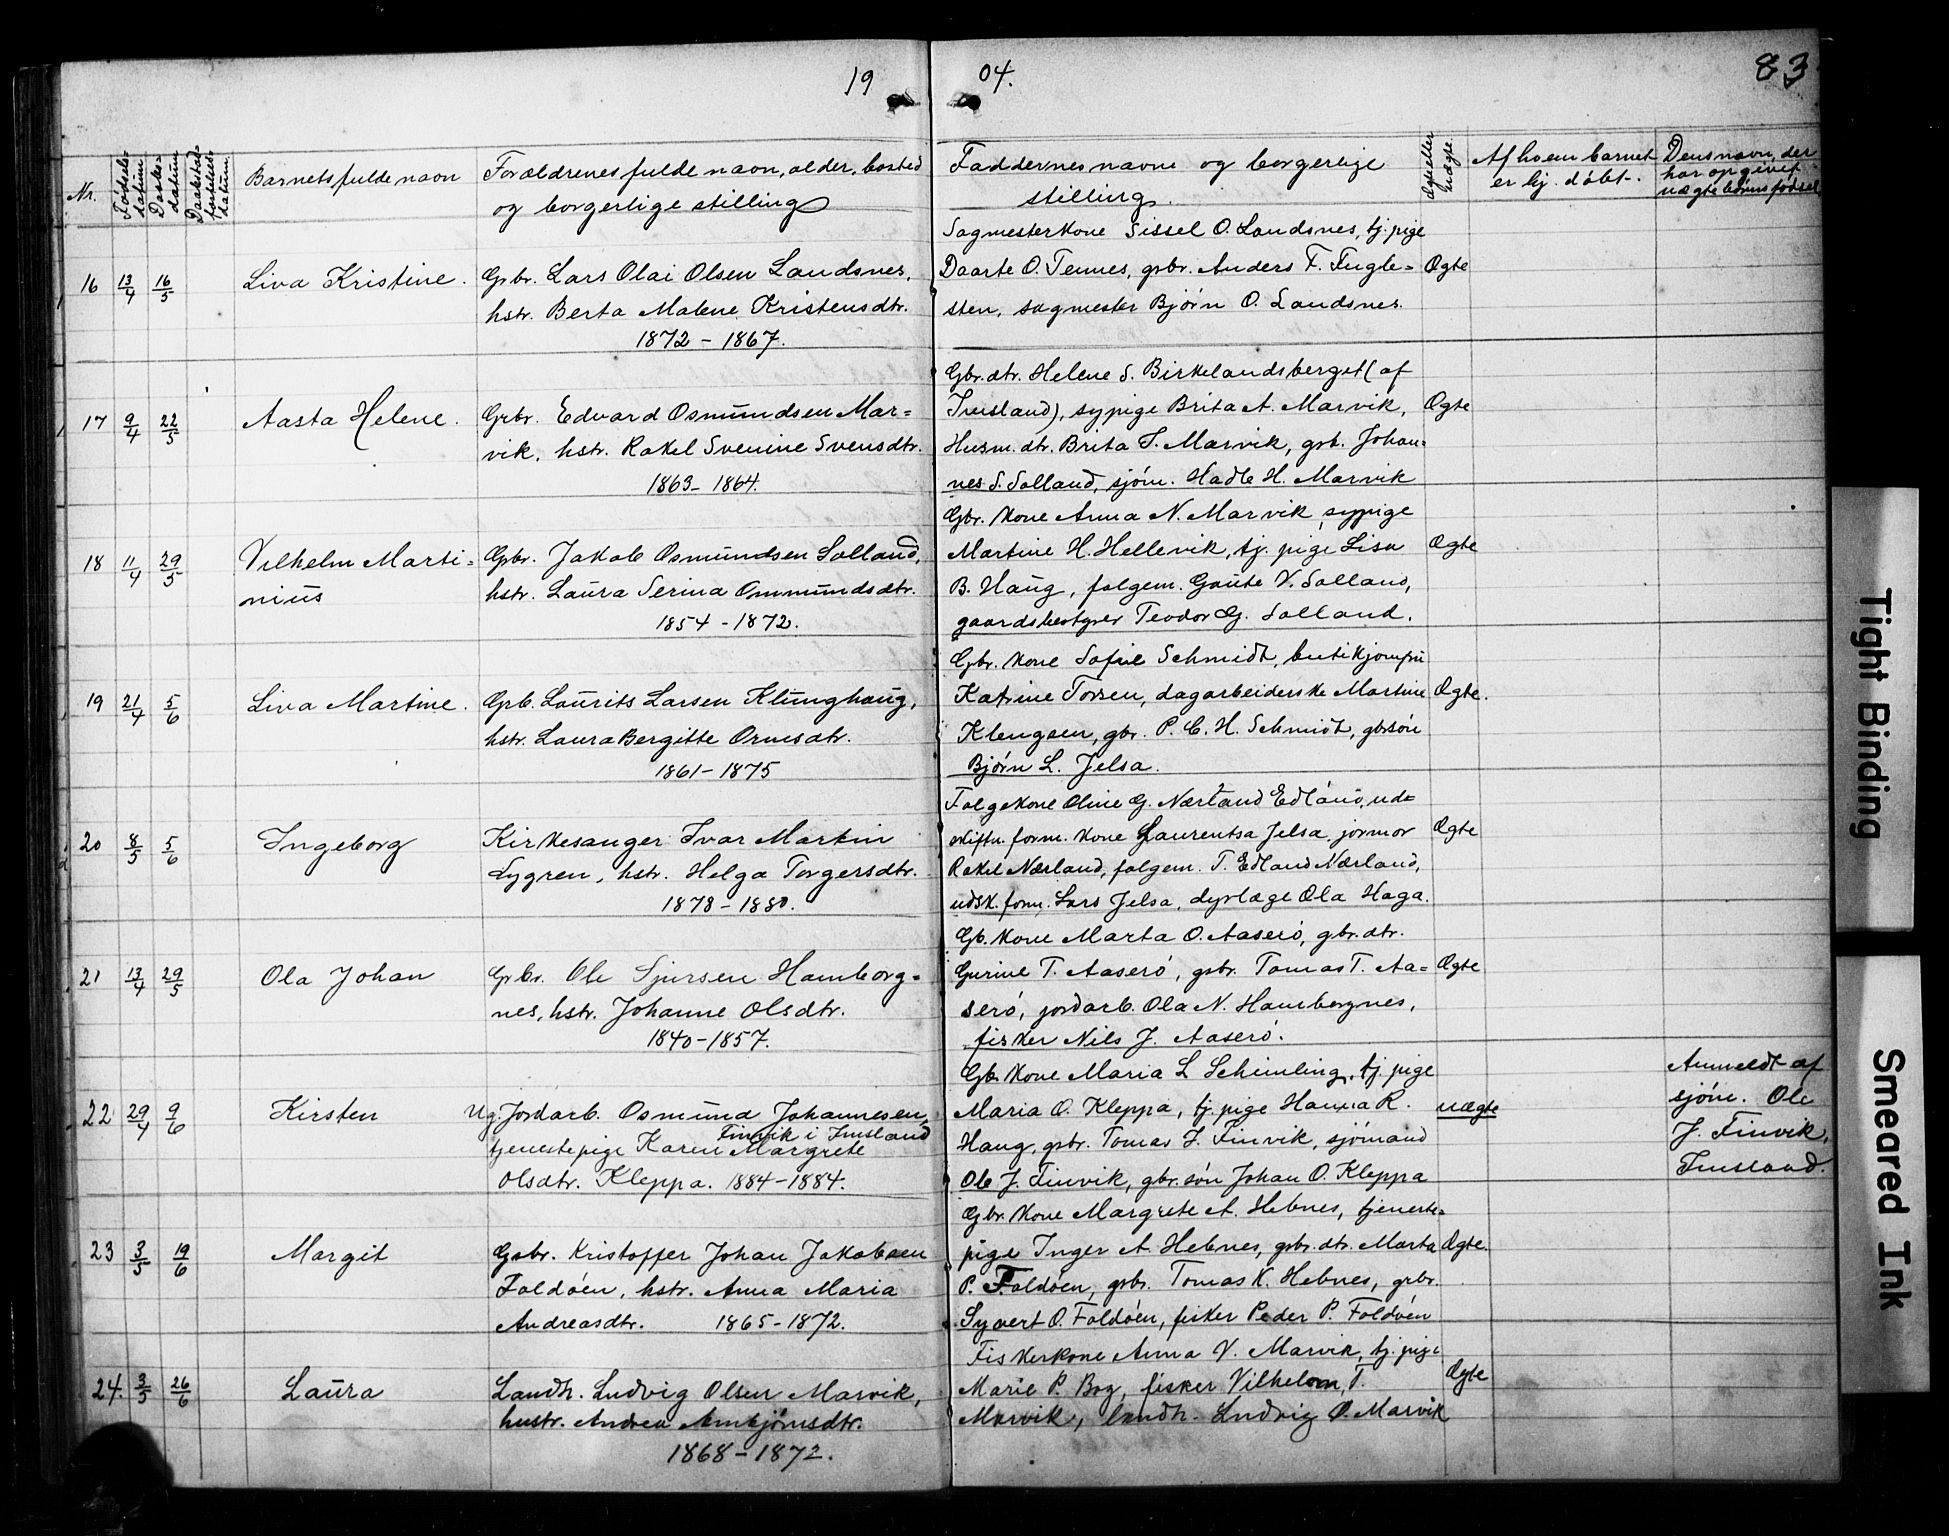 19 04. 83
Nr. Fødsels-datum Daabs-datum Daabstad-festelses-datum Barnets fulde navn Forældrenes fulde navn, alder, bosted Faddernes navne og borgerlige Ægte eller uægte. Af hvem barnet Dens navn, der
og borgerlige stilling stilling. er hj. døbt. har opgivet
uægte børns fødsel
Sagmesterkone Sissel O. Landsnes, tj. pige
16 13/4 16/5 Liva Kristine. Gbr. Lars Olai Olsen Landsnes, Daarte O. Tennes, gbr. Anders F. Fugle= Ægte
hstr. Berta Malene Kristensdtr. sten, sagmester Bjørn O. Landsnes.
1872 - 1867.
Gbr. dtr. Helene S. Birkelandsberget (af
17 9/4 22/5 Aasta Helene. Gbr. Edvard Osmundsen Mar= Imsland), sypige Brita A. Marvik, Ægte
vik, hstr. Rakel Svenine Svensdtr. Husm. dtr. Brita S. Marvik, gbr. Johan=
1863 - 1864. nes S. Solland, sjøm. Hadle H. Marvik
Gbr. kone Anna N. Marvik, sypige
18 11/4 29/5 Vilhelm Marti= Gbr. Jakob Osmundsen Solland, Martine H. Hellevik, tj. pige Lisa Ægte
nius hstr. Laura Serina Ommundsdtr. B. Haug, folgem. Gaute V. Solland,
1854 - 1872. gaardsbestyrer Teodor G. Solland.
Gbr. kone Sofie Schmidt, butikjomfru
19 21/4 5/6 Liva Martine. Gbr. Laurits Larsen Klunghaug, Katrine Torsen, dagarbeiderske Martine Ægte.
hstr. Laura Bergitte Ormsdtr. Klengsen, gbr. P. C. H. Schmidt, gbrsøn
1861 - 1875 Bjørn L. Jelsa.
Folgekone Oline G. Nærland Edland, ud=
20 8/5 5/6 Ingeborg Kirkesanger Ivar Martin skiftn. form. kone Laurentsa Jelsa, jormor Ægte
Lygren, hstr. Helga Torgersdtr. Rakel Nærland, folgem. T. Edland Nærland,
1878 - 1880. udsk. form. Lars Jelsa, dyrlæge Ola Haga.
Gb. kone Marta O. Aaserø, gbr. dtr.
21 13/4 29/5 Ola Johan Gbr. Ole Sjursen Hamborg= Gurine T. Aaserø, gbr. Tomas T. Aa= Ægte
nes, hstr. Johanne Olsdtr. serø, jordarb. Ola N. Hamborgnes,
1840 - 1857. fisker Nils J. Aaserø.
Gb. kone Maria L Schimling, tj. pige Anmeldt af
22 29/4 9/6 Kirsten Ug. Jordarb. Osmund Johannesen, Maria O. Kleppa, tj. pige Hanna R. uægte sjøm. Ole
Finvik i Imsland
tjenestepige Karen Margrete Haug, gbr. Tomas J. Finvik, sjømand J. Finvik,
Olsdtr. Kleppa. 1884 - 1884. Ole J. Finvik, gbr. søn Johan O. Kleppa Imsland.
Gbr. kone Margrete A. Hebnes, tjeneste=
23 3/5 19/6 Margit Gbr. Kristoffer Johan Jakobsen pige Inger A. Hebnes, gbr. dtr. Marta Ægte.
Foldøen, hstr. Anna Maria P. Foldøen, gbr. Tomas K. Hebnes, gbr.
Andreasdtr. 1865 - 1872. Syvert O. Foldøen, fisker Peder P. Foldøen
Fiskerkone Anna V. Marvik, tj. pige
24. 3/5 26/6 Laura Landh. Ludvig Olsen Marvik, Marie P. Bog, fisker Vilhelm T. Ægte
hustr. Andrea Arnbjørnsdtr. Marvik, landh. Ludvig O. Marvik
1868 - 1872.
Tight Binding
Smeared Ink